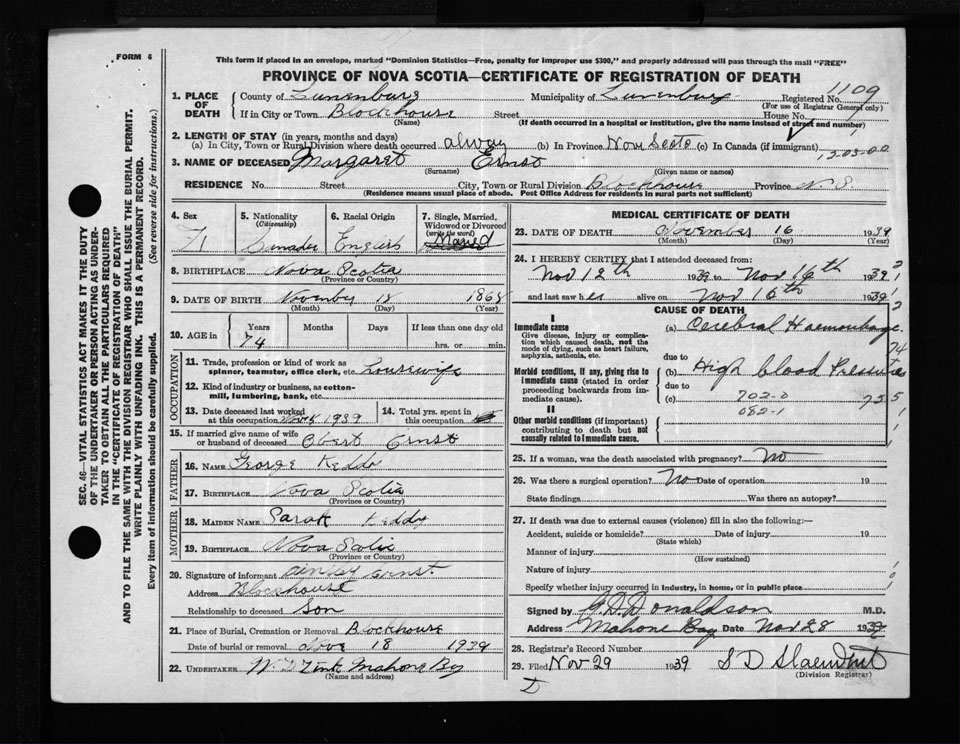 FORM 6
This form if placed in an envelope, marked "Dominion Statistics—Free, penalty for improper use $300," and properly addressed will pass through the mail "FREE"
PROVINCE OF NOVA SCOTIA—CERTIFICATE OF REGISTRATION OF DEATH
1109
1. PLACE OF DEATH
County of Lunenburg Municipality of Lunenburg Registered No.
(For use of Registrar General only)
If in City or Town Blockhouse Street House No.
(Name) (If death occurred in a hospital or institution, give the name instead of street and number)
2. LENGTH OF STAY (in years, months and days)
(a) In City, Town or Rural Division where death occurred alway (b) In Province Nova Scotia (c) In Canada (if immigrant)
12-03-00
3. NAME OF DECEASED Margaret Ernst
(Surname) (Given name or names)
RESIDENCE No. Street City, Town or Rural Division Blockhouse Province N.S.
(Residence means usual place of abode. Post Office Address for residents in rural parts not sufficient)
4. Sex 5. Nationality (Citizenship) 6. Racial Origin 7. Single, Married, Widowed or Divorced (write the word)
Maried
8. BIRTHPLACE Nova Scotia
(Province or Country)
9. DATE OF BIRTH 18 1868
(Month) (Day) (Year)
10. AGE in Years Months Days If less than one day old
74 hrs. or min.
OCCUPATION
11. Trade, profession or kind of work as spinner, teamster, office clerk, etc. housewife
12. Kind of industry or business, as cotton-mill, lumbering, bank, etc.
13. Date deceased last worked at this occupation 1939
14. Total yrs. spent in this occupation
15. If married give name of wife or husband of deceased Obert Ernst
FATHER
16. NAME George Keddy
17. BIRTHPLACE Nova Scotia
(Province or Country)
MOTHER
18. MAIDEN NAME Sarah Keddy
19. BIRTHPLACE Nova Scotia
(Province or Country)
20. Signature of informant Ernst.
Address Blockhouse
Relationship to deceased Son
21. Place of Burial, Cremation or Removal Blockhouse
Date of burial or removal Nove 18 1939
22. UNDERTAKER Zink Mahone Bay
(Name and address)
MEDICAL CERTIFICATE OF DEATH
23. DATE OF DEATH November 16 1939
(Month) (Day) (Year)
24. I HEREBY CERTIFY that I attended deceased from:
Nov 12th 1939 to Nov 16th 1939
and last saw her alive on Nov 16th 1939
CAUSE OF DEATH
I
Immediate cause
Give disease, injury or complication which caused death, not the mode of dying, such as heart failure, asphyxia, asthenia, etc.
(a) Cerebral Haemorrhage
due to
Morbid conditions, if any, giving rise to immediate cause (stated in order proceeding backwards from immediate cause).
(b) High blood Pressure
due to
(c) 702-0
082-1
II
Other morbid conditions (if important) contributing to death but not causally related to immediate cause.
25. If a woman, was the death associated with pregnancy? No
26. Was there a surgical operation? No Date of operation 19
State findings Was there an autopsy?
27. If death was due to external causes (violence) fill in also the following:—
Accident, suicide or homicide? Date of injury 19
(State which)
Manner of injury
(How sustained)
Nature of injury
Specify whether injury occurred in industry, in home, or in public place
Signed by Donaldson M.D.
Address Mahone Bay Date Nov 28 1939
28. Registrar's Record Number
29. Filed Nov 29 1939 S D
(Division Registrar)
SEC. 46—VITAL STATISTICS ACT MAKES IT THE DUTY
OF THE UNDERTAKER OR PERSON ACTING AS UNDER-
TAKER TO OBTAIN ALL THE PARTICULARS REQUIRED
IN THE "CERTIFICATE OF REGISTRATION OF DEATH"
AND TO FILE THE SAME WITH THE DIVISION REGISTRAR WHO SHALL ISSUE THE BURIAL PERMIT.
WRITE PLAINLY WITH UNFADING INK. THIS IS A PERMANENT RECORD.
Every item of information should be carefully supplied. (See reverse side for instructions.)